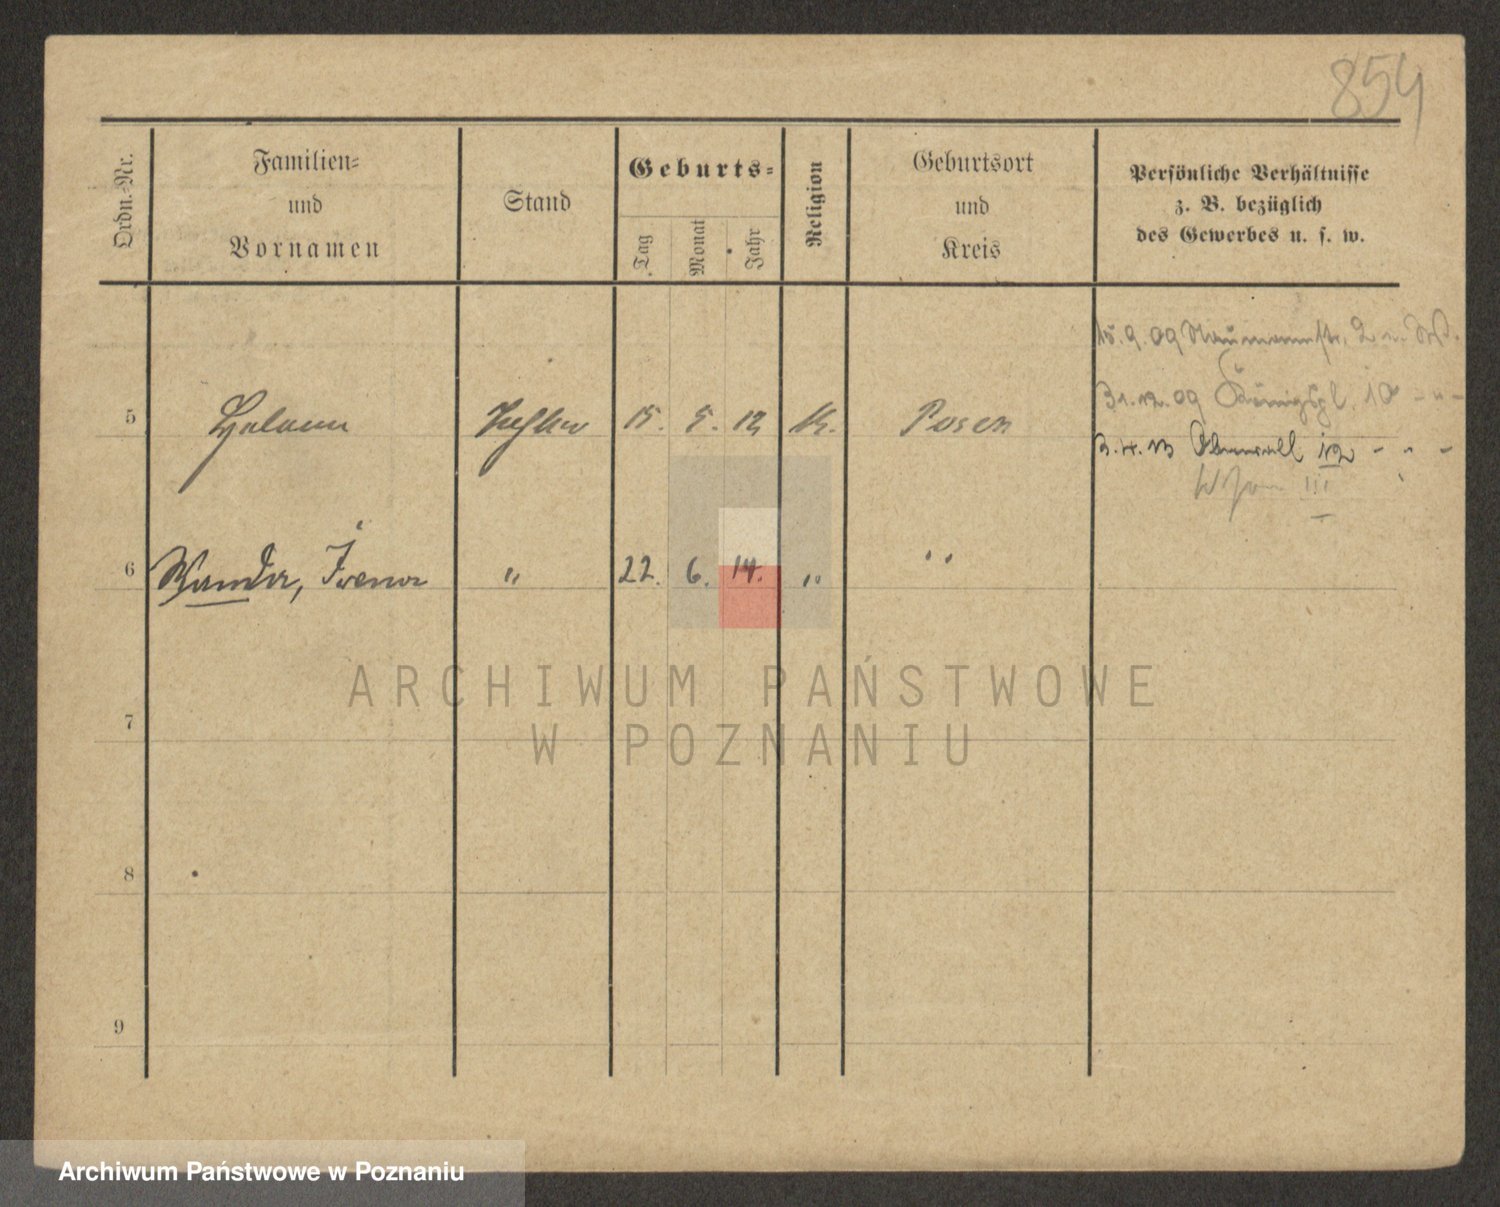 854
Ordn.-Nr.
Familien-
und
Vornamen
Stand
Geburts-
Tag
Monat
Jahr
Religion
Geburtsort
und
Kreis
Persönliche Verhältnisse
z. B. bezüglich
des Gewerbes u. s. w.
15.9.09 Naumannstr. 2
31.12.09 Königspl. 10 - " -
5 Tochter 15. 5. 12 K. Posen
3.4.13 Oberwall 12 - " -
III
6 Wanda, Irena " 22. 6. 14. " "
ARCHIWUM PAŃSTWOWE
W POZNANIU
7
8
9
Archiwum Państwowe w Poznaniu